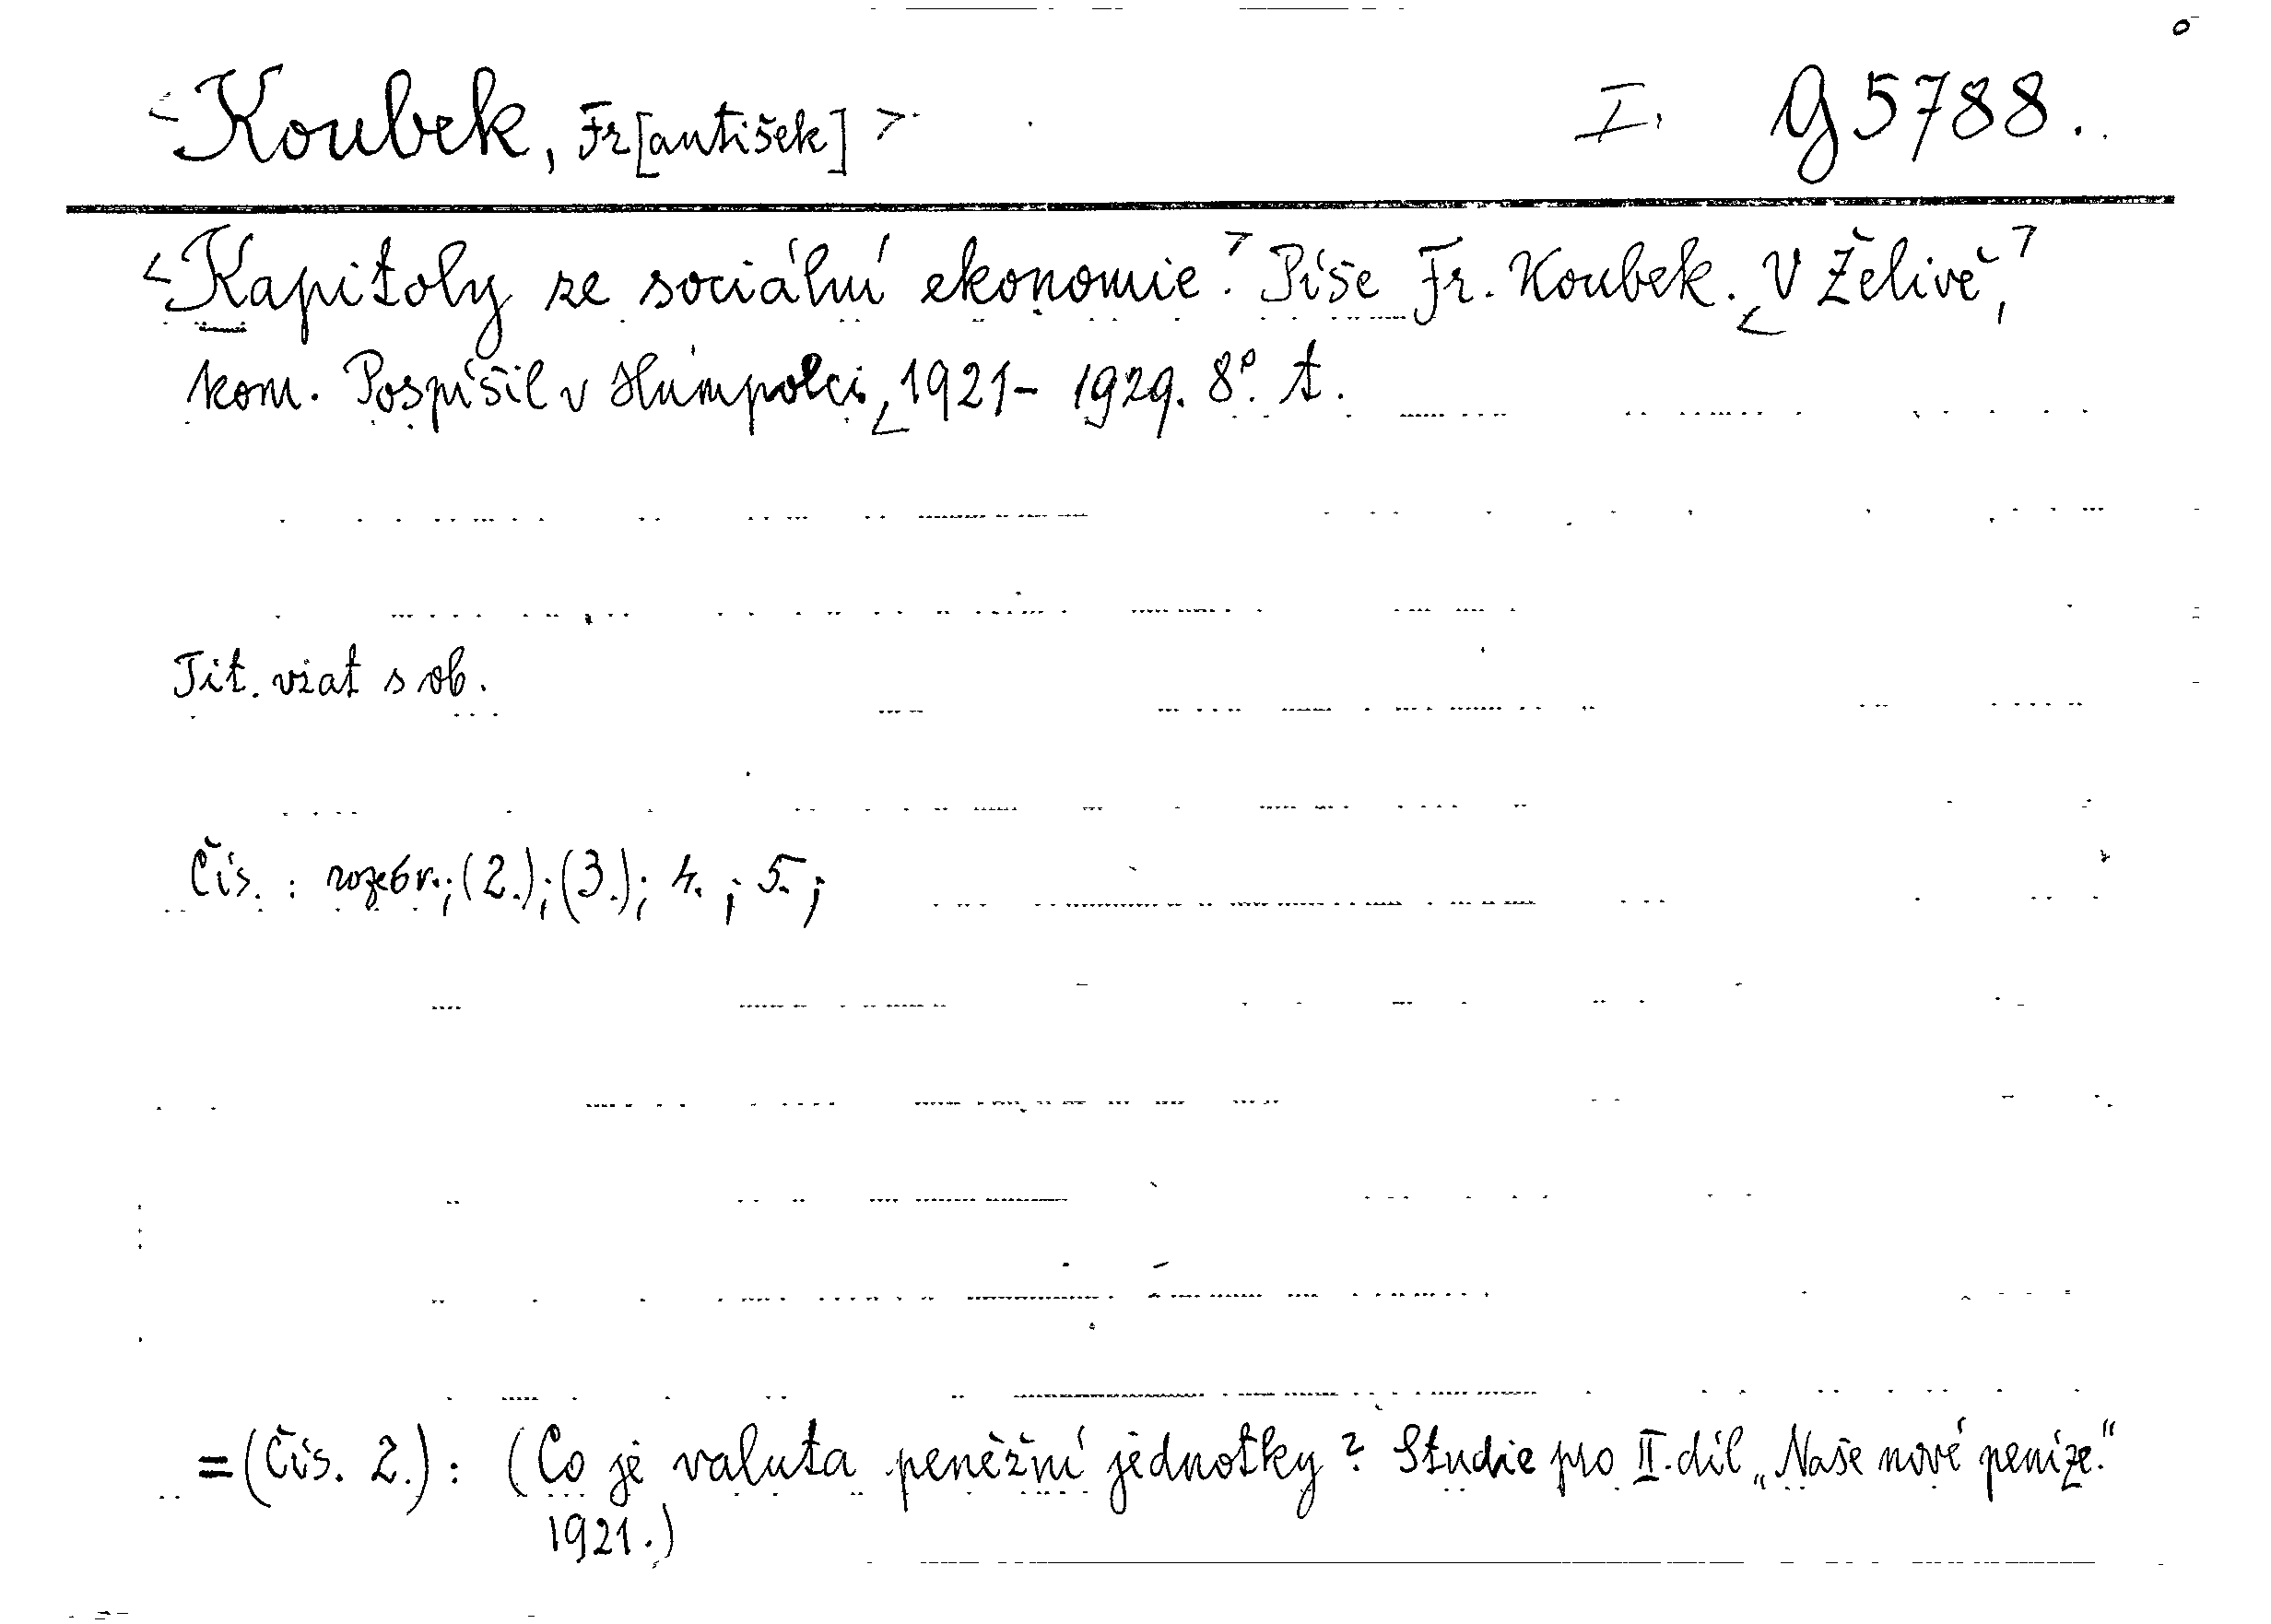 <Koubek, Fr[antišek]> I. G 5788.
<Kapitoly ze sociální ekonomie.> Píše Fr. Koubek. <V Želivě,>
kom. Pospíšil v Humpolci, <1921- 1929. 8°. t.
Tit. vzat s ob.
Čís. : rozebr.; (2.); (3.); 4. ; 5. ;
= (Čís. 2.) : (Co je valuta peněžní jednotky? Studie pro II. díl „Naše nové peníze.“
1921.)